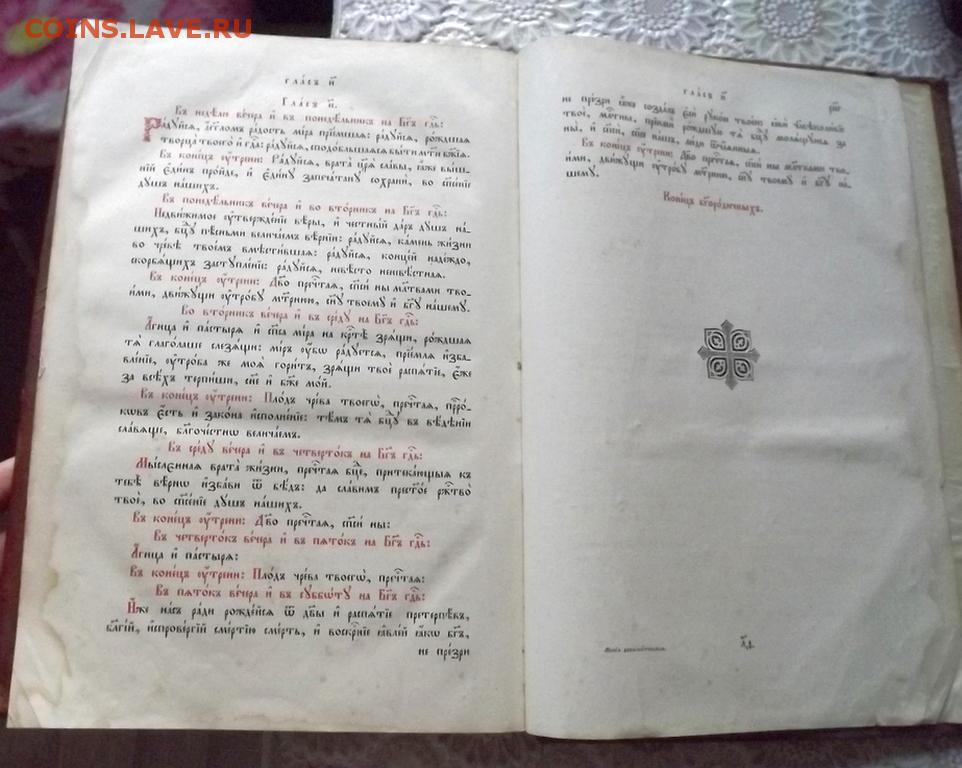 COINS.LAVE.RU
гла́съ и҃
Гла́съ и҃.
Въ недѣ́лю ве́чера и҆ въ понедѣ́льникъ на Бг҃ъ гдⷭ҇ь:
Ра́дуйсѧ, а҆́гг҃ломъ ра́дость мі́ра прїе́мшаѧ: ра́дуйсѧ, ро́ждшаѧ
творца̀ твоего̀ и҆ гдⷭ҇а: ра́дуйсѧ, сподо́бльшаѧсѧ бы́ти мт҃и бж҃їѧ.
Въ коне́цъ ᲂу҆́трени: Ра́дуйсѧ, врата̀ цр҃ѧ̀ сла́вы, ꙗ҆̀же вы́ш-
нїй є҆ди́нъ про́йде, и҆ є҆ди́ну запеча́тану сохранѝ, во сп҃се́нїе
дꙋ́шъ на́шихъ.
Въ понедѣ́льникъ ве́чера и҆ во вто́рникъ на Бг҃ъ гдⷭ҇ь:
Недви́жимое ᲂу҆твержде́нїе вѣ́ры, и҆ честны́й да́ръ дꙋ́шъ на́-
шихъ, бцⷣꙋ пѣ́сньми велича́емъ вѣ́рнїи: ра́дуйсѧ, ка́мень жи́зни
во чре́вѣ твое́мъ вмѣсти́вшаѧ: ра́дуйсѧ, конц҃є́й наде́ждо,
скорбѧ́щихъ застꙋпле́нїе: ра́дуйсѧ, невѣ́сто неневѣ́стнаѧ.
Въ коне́цъ ᲂу҆́трени: Дв҃о пречⷭ҇таѧ, сп҃сѝ ны̀ мл҃твами тво-
и́ми, дви́жꙋщи ᲂу҆тро́бꙋ мт҃рнюю, сн҃ꙋ твоемꙋ̀ и҆ бг҃ꙋ на́шемꙋ.
Во вто́рникъ ве́чера и҆ въ сре́дꙋ на Бг҃ъ гдⷭ҇ь:
А҆́гница и҆ па́стырѧ и҆ сп҃са мі́ра на крⷭ҇тѣ̀ зрѧ́щи, ро́ждшаѧ
тѧ̀ глаго́лаше слезѧ́щи: мі́ръ ᲂу҆́бѡ ра́дꙋетсѧ, прїе́млѧ и҆зба-
вле́нїе, ᲂу҆тро́ба же моѧ̀ гори́тъ, зрѧ́щи твоѐ распѧ́тїе, є҆́же
за всѣ́хъ терпи́ши, сн҃е и҆ бж҃е мо́й.
Въ коне́цъ ᲂу҆́трени: Пло́дъ чре́ва твоегѡ̀, пречⷭ҇таѧ, прⷪ҇ро́-
кѡвъ є҆́сть и҆ зако́на и҆сполне́нїе: тѣ́мъ тѧ̀ бцⷣꙋ въ вѣ́дѣнїи
сла́вѧще, благоче́стнѡ велича́емъ.
Въ сре́дꙋ ве́чера и҆ въ четверто́къ на Бг҃ъ гдⷭ҇ь:
Мы́сленнаѧ врата̀ жи́зни, пречⷭ҇таѧ бцⷣе, притека́ющыѧ къ
тебѣ̀ вѣ́рнѡ и҆зба́ви ѿ бѣ́дъ: да сла́вимъ прест҃о́е ржⷭ҇тво̀
твоѐ, во сп҃се́нїе дꙋ́шъ на́шихъ.
Въ коне́цъ ᲂу҆́трени: Дв҃о пречⷭ҇таѧ, сп҃сѝ ны̀:
Въ четверто́къ ве́чера и҆ въ пѧто́къ на Бг҃ъ гдⷭ҇ь:
А҆́гница и҆ па́стырѧ:
Въ коне́цъ ᲂу҆́трени: Пло́дъ чре́ва твоегѡ̀, пречⷭ҇таѧ:
Въ пѧто́къ ве́чера и҆ въ сꙋббѡ́тꙋ на Бг҃ъ гдⷭ҇ь:
И҆́же на́съ ра́ди рожде́йсѧ ѿ дв҃ы и҆ распѧ́тїе претерпѣ́въ,
бл҃гі́й, и҆спрове́ргїй сме́ртїю сме́рть, и҆ воскрⷭ҇нїе ꙗ҆вле́й ꙗ҆́кѡ бг҃ъ,
не пре́зри
гла́съ и҃
не пре́зри ꙗ҆̀же созда́лъ є҆сѝ рꙋко́ю твое́ю: ꙗ҆вѝ человѣколю́бїе
твоѐ, млⷭ҇тиве, прїимѝ ро́ждшꙋю тѧ̀ бцⷣꙋ молѧ́щꙋюсѧ за
ны̀, и҆ сп҃сѝ, сп҃се на́шъ, лю́ди ѿча́ѧнныѧ.
Въ коне́цъ ᲂу҆́трени: Дв҃о пречⷭ҇таѧ, сп҃сѝ ны̀ мл҃твами тво-
и́ми, дви́жꙋщи ᲂу҆тро́бꙋ мт҃рнюю, сн҃ꙋ твоемꙋ̀ и҆ бг҃ꙋ на́-
шемꙋ.
Коне́цъ бг҃оро́дичныхъ.